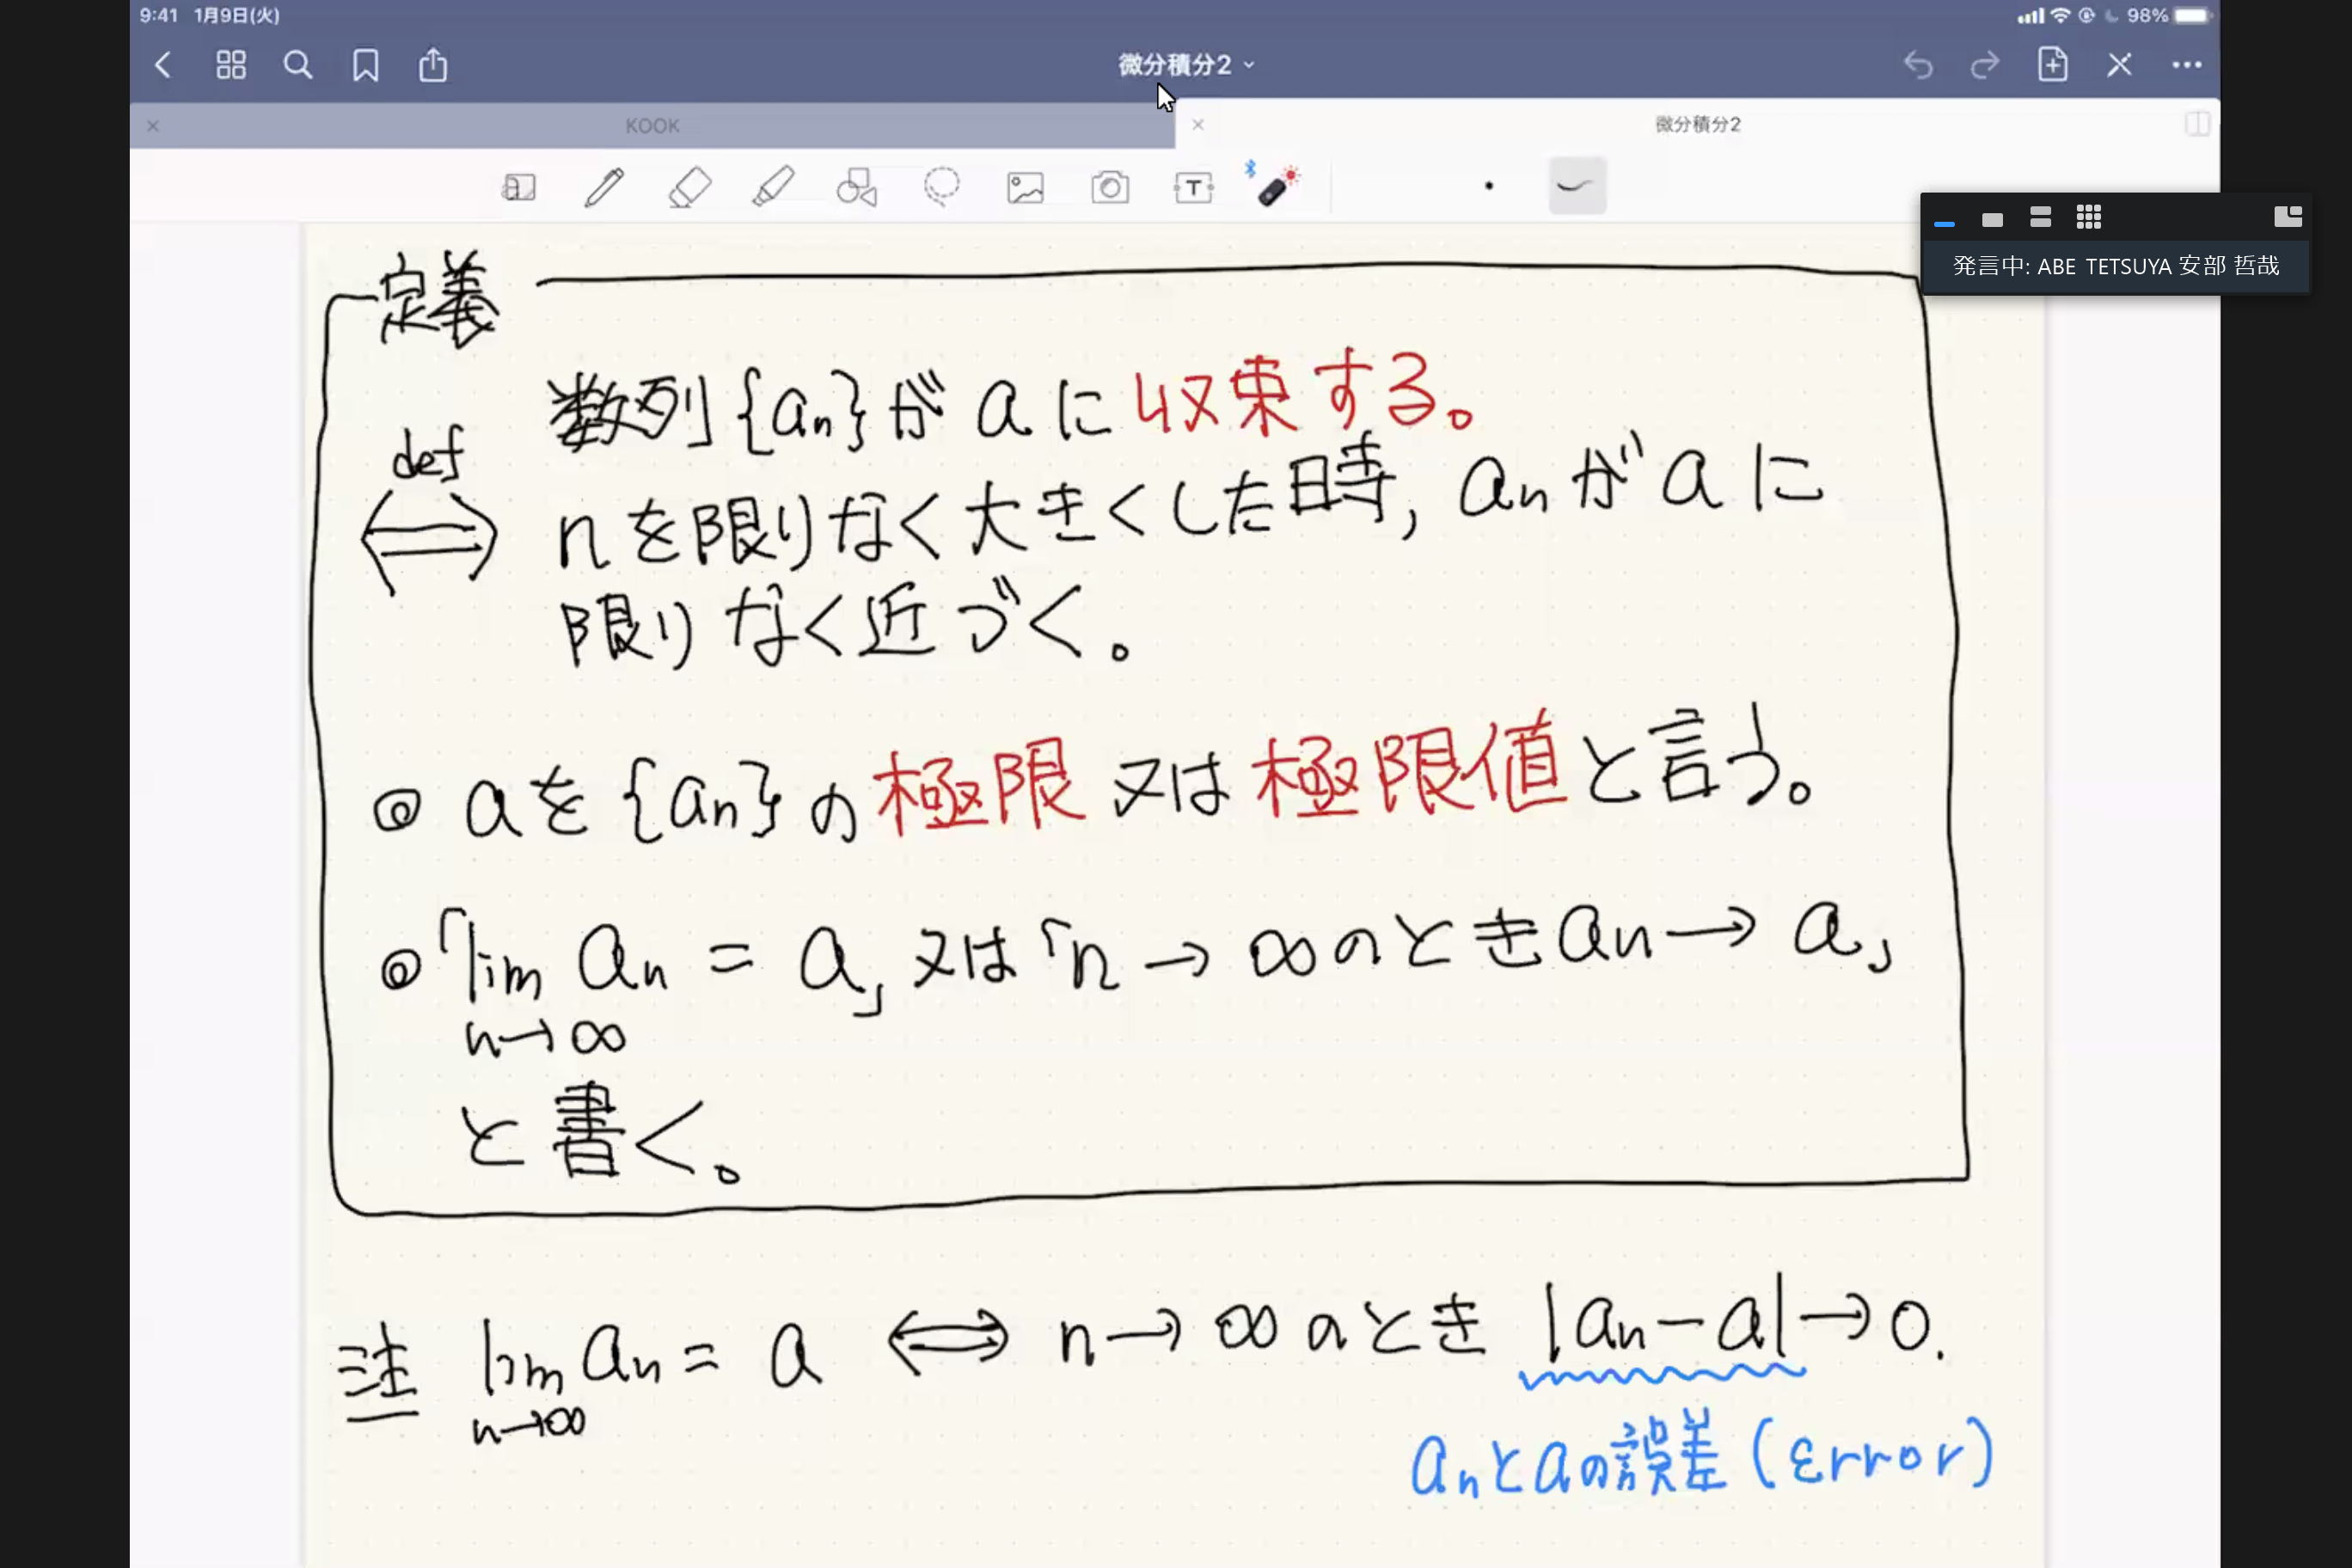 9:41 1月9日(火)
98%
微分積分2
KOOK
微分積分2
発言中: ABE TETSUYA 安部 哲哉
定義
数列{an}がaに収束する。
def
⟺ nを限りなく大きくした時, anがaに
限りなく近づく。
◎ aを{an}の極限又は極限値と言う。
◎「lim an = a」又は「n→∞のときan→a」
n→∞
と書く。
注 lim an = a ⟺ n→∞のとき |an-a|→0.
n→∞
anとaの誤差(error)